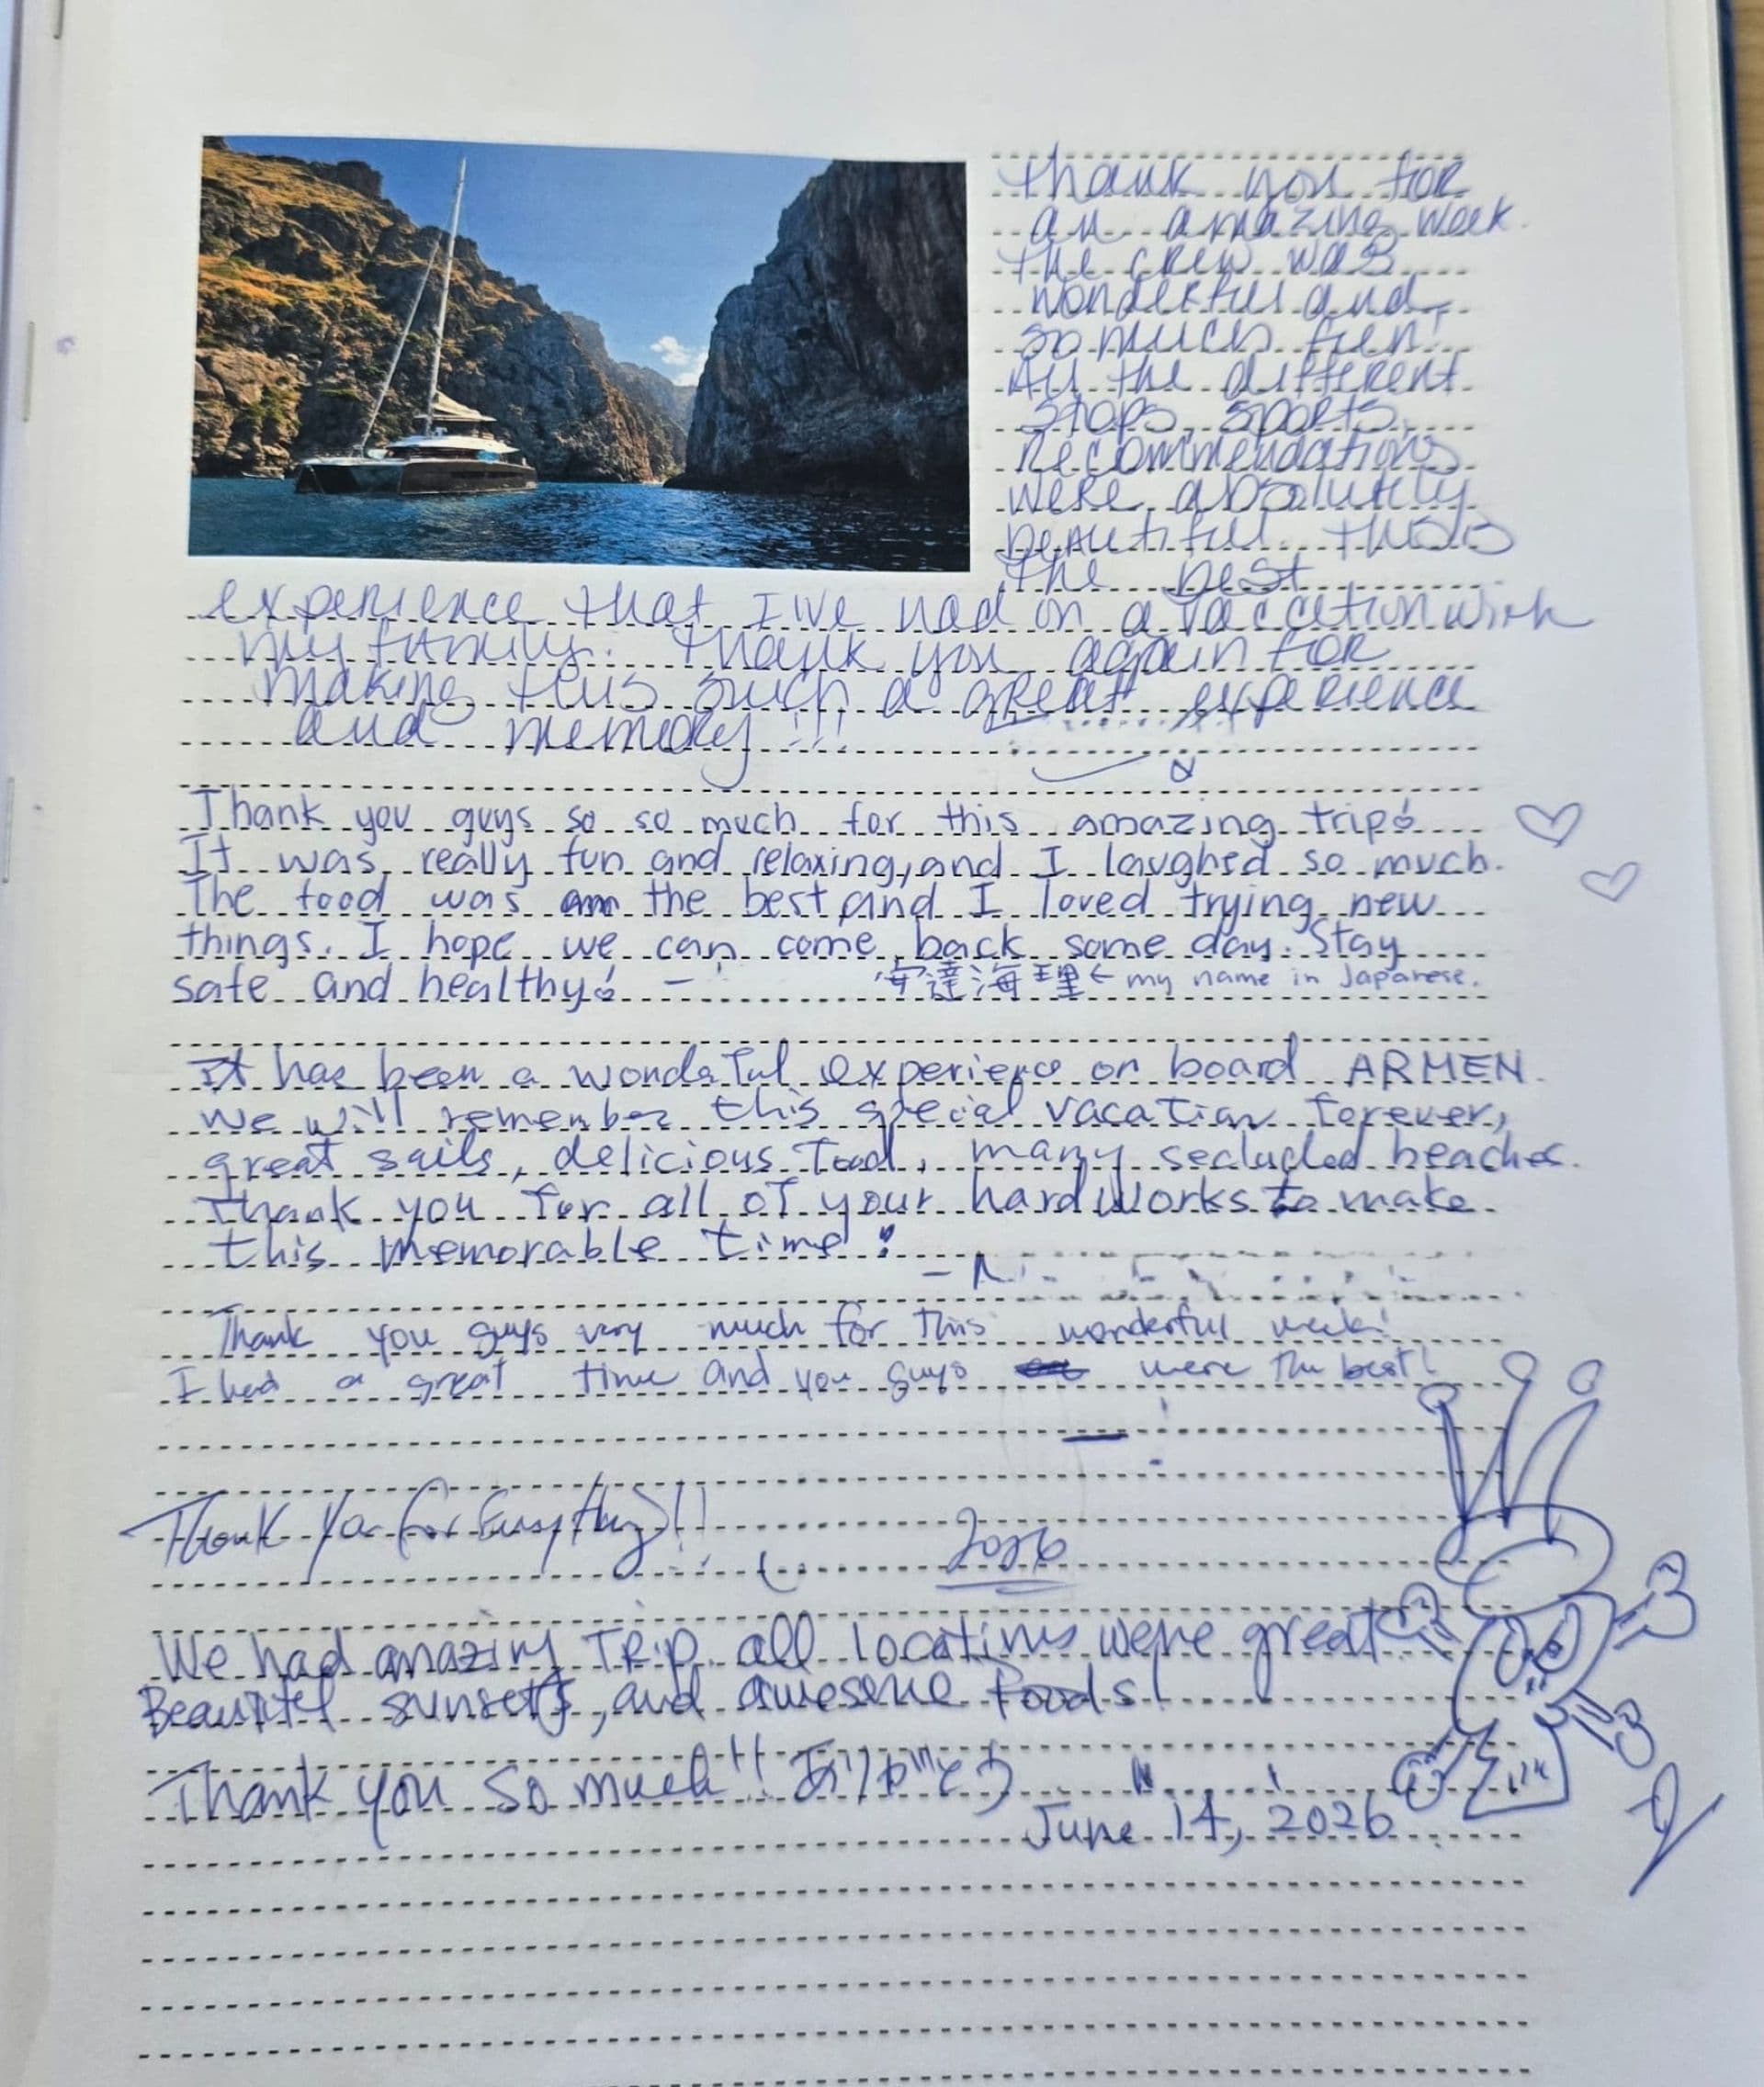 Thank you for
an amazing week.
The crew was
wonderful and
so much fun!
All the different
stops, sports,
recommendations
were absolutely
beautiful. This is
the best
experience that I've had on a vaccation with
my family. Thank you again for
making this such a great experience
and memory!!!
Thank you guys so so much for this amazing trip!
It was really fun and relaxing, and I laughed so much.
The food was the best and I loved trying new
things. I hope we can come back some day. Stay
safe and healthy! -
安達海理 ← my name in Japanese.
It has been a wonderful experience on board ARMEN.
We will remember this special vacation forever,
great sails, delicious food, many secluded beaches.
Thank you for all of your hard works to make
this memorable time!
Thank you guys very much for this wonderful week!
I had a great time and you guys were the best!
Thank You For Everything!!
2026
We had amazing TRip. all locations were great
Beautiful sunsets, and awesome foods!
Thank you so much!! ありがとう
June 14, 2026